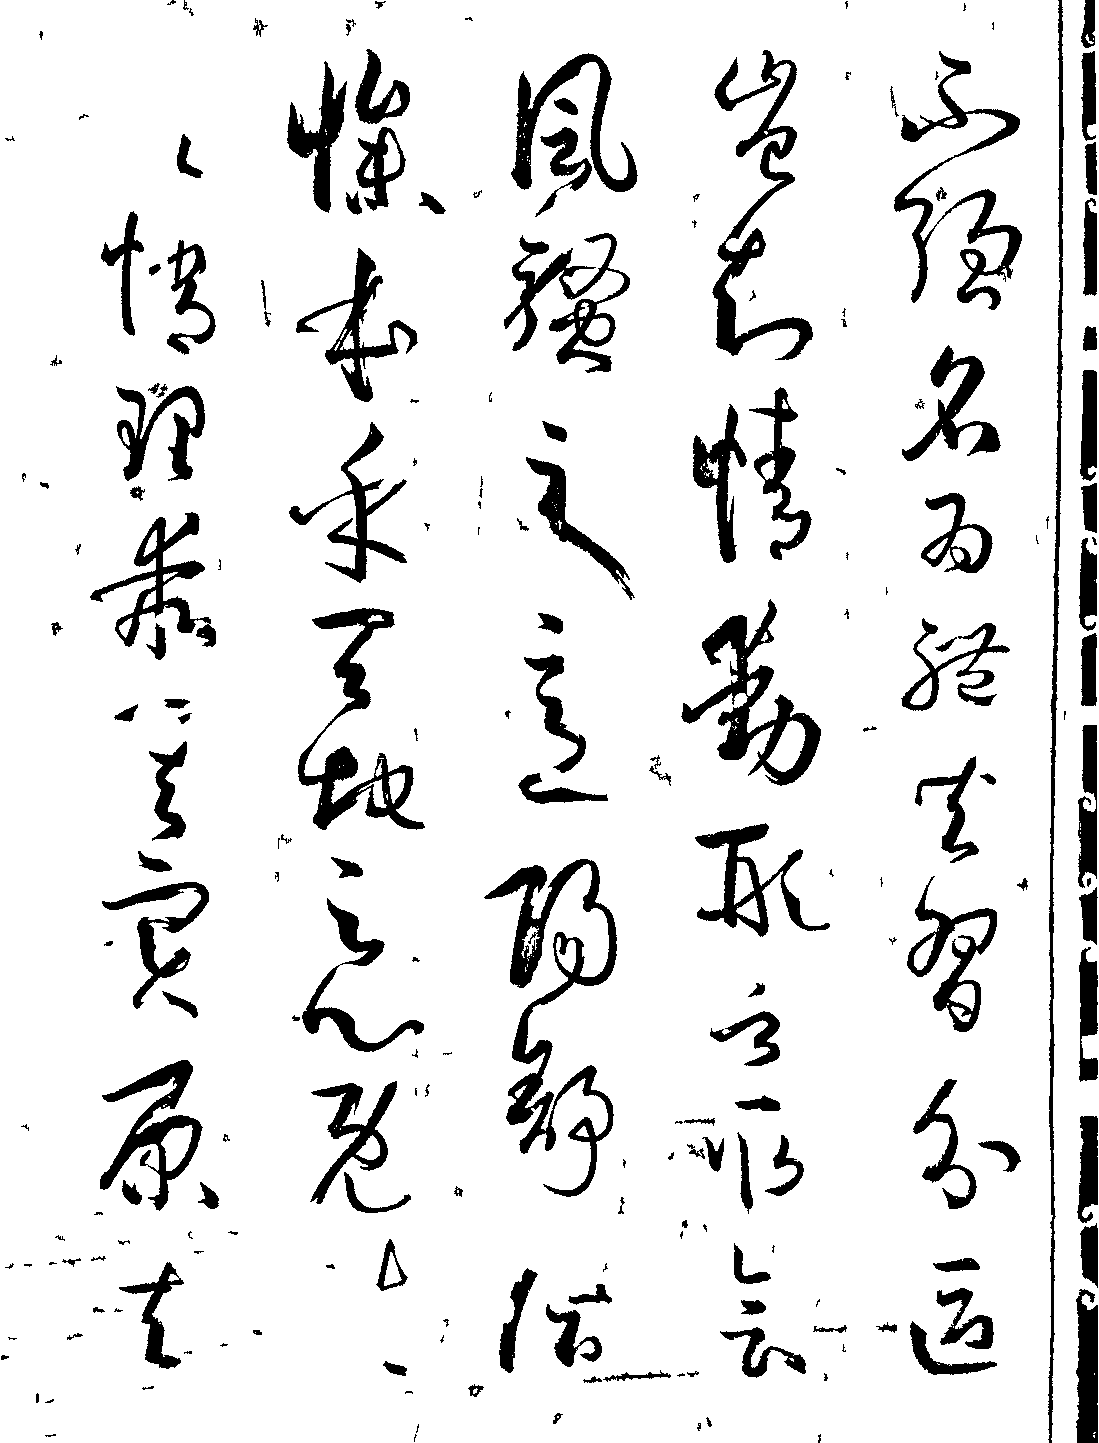 不強名為體共習分區
豈知情動形言取會
風騷之意陽舒陰
慘本乎天地之心既
情理乖其實原夫